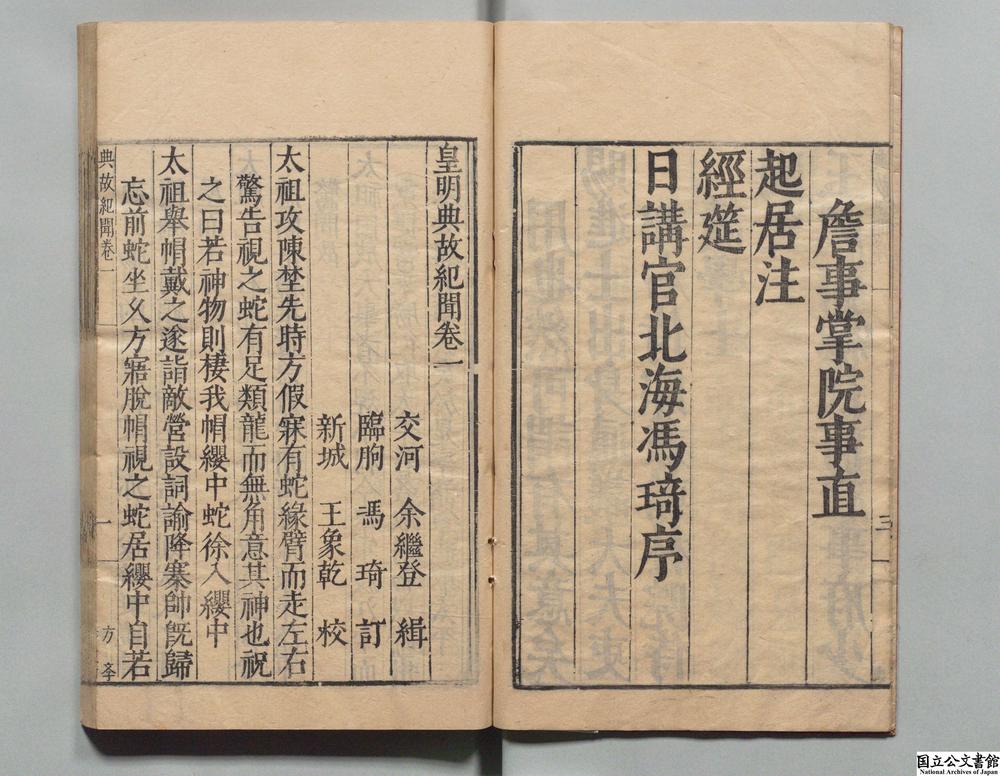 詹事掌院事直
起居注
經筵
日講官北海馮琦序
三
皇明典故紀聞卷一
交河 余繼登 緝
臨朐 馮琦 訂
新城 王象乾 校
太祖攻陳埜先時方假寐有蛇緣臂而走左右
驚告視之蛇有足類龍而無角意其神也祝
之曰若神物則棲我帽纓中蛇徐入纓中
太祖舉帽戴之遂詣敵營設詞諭降寨帥旣歸
忘前蛇坐久方寤脫帽視之蛇居纓中自若
典故紀聞卷一
一
国立公文書館
National Archives of Japan